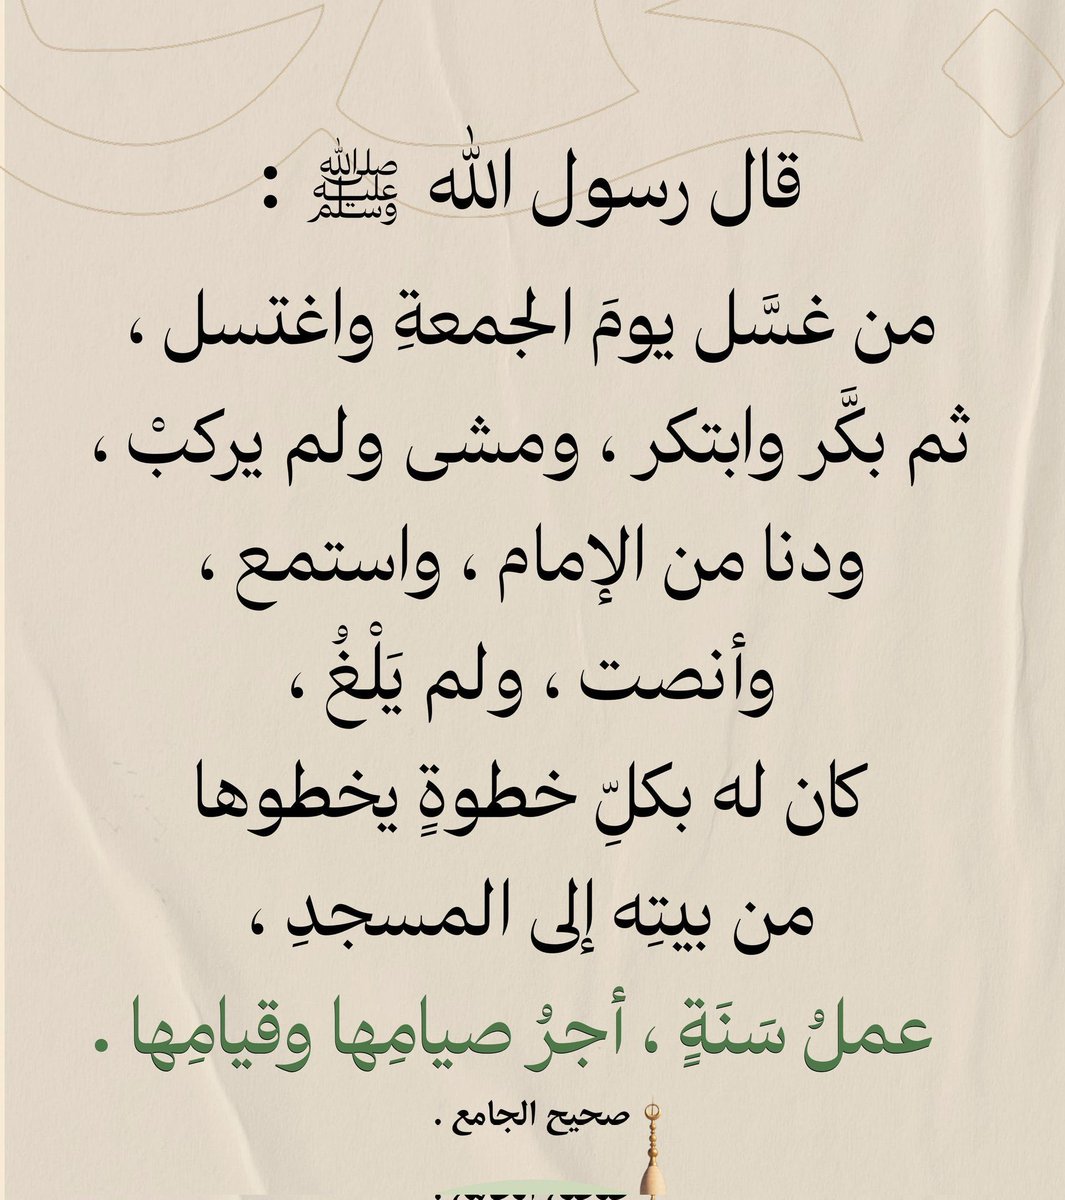 قال رسول الله ﷺ :
من غسَّل يومَ الجمعةِ واغتسل ،
ثم بكَّر وابتكر ، ومشى ولم يركبْ ،
ودنا من الإمام ، واستمع ،
وأنصت ، ولم يَلْغُ ،
كان له بكلِّ خطوةٍ يخطوها
من بيتِه إلى المسجدِ ،
عملُ سَنَةٍ ، أجرُ صيامِها وقيامِها .
صحيح الجامع .